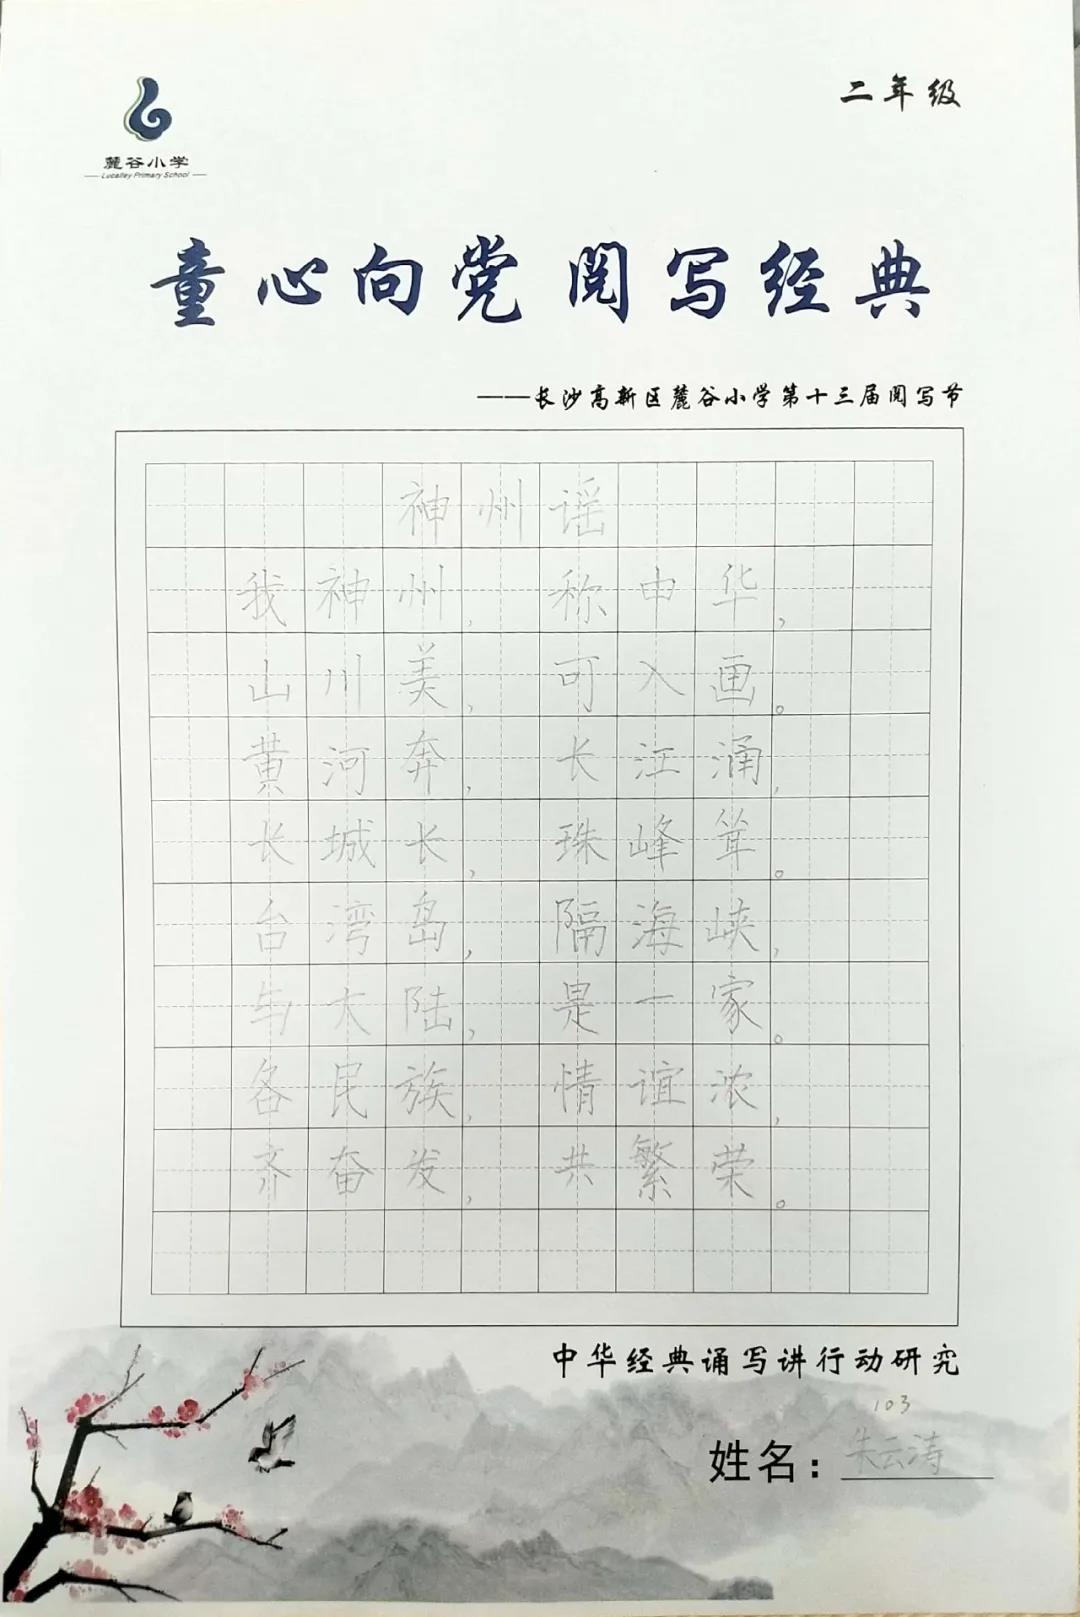 二年级
麓谷小学
Lucalley Primary School
童心向党 阅写经典
——长沙高新区麓谷小学第十三届阅写节
神州谣
我神州, 称中华,
山川美, 可入画。
黄河奔, 长江涌,
长城长, 珠峰耸。
台湾岛, 隔海峡,
与大陆, 是一家。
各民族, 情谊浓,
齐奋发, 共繁荣。
中华经典诵写讲行动研究
103
姓名:朱云涛